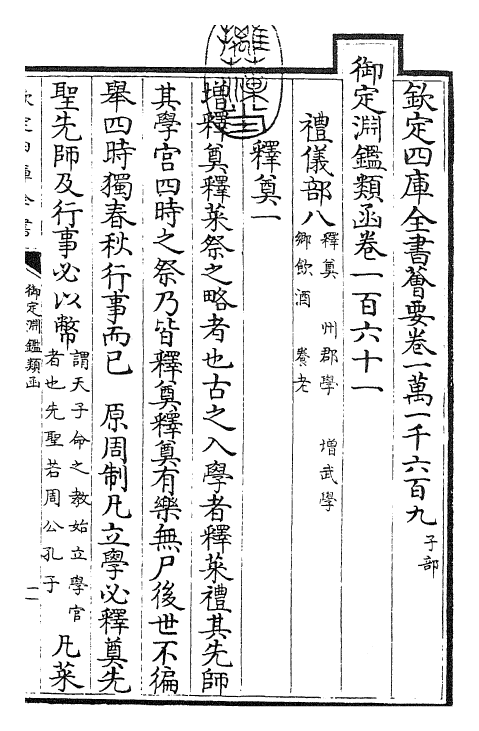 欽定四庫全書薈要卷一萬一千六百九 子部
御定淵鑑類函卷一百六十一
禮儀部八 釋奠 州郡學 增武學 鄉飲酒 養老
釋奠一
增釋奠釋菜祭之略者也古之入學者釋菜禮其先師
其學官四時之祭乃皆釋奠釋奠有樂無尸後世不徧
舉四時獨春秋行事而已 原周制凡立學必釋奠先
聖先師及行事必以幣 謂天子命之教始立學官者也先聖若周公孔子 凡菜
御定淵鑑類函